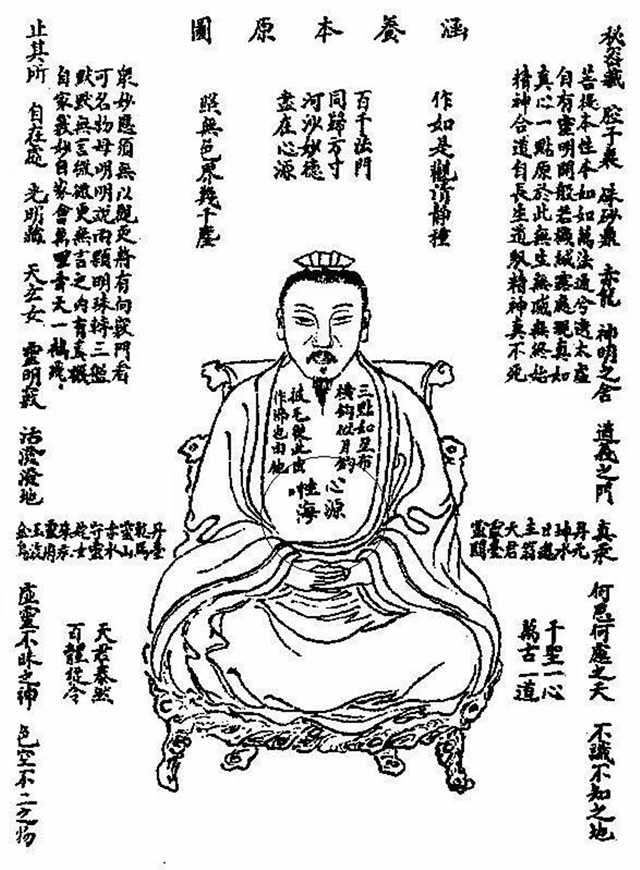 涵養本原圖
秘密藏 腔子裏 硃砂鼎 赤龍 神明之舍 道義之門 真汞 何思何慮之天 不識不知之地
菩提本性本如如萬法通兮透太虛
自有靈明開般若機緘露處現真如
真心一點原於此無生無滅無終始
精神合道自長生道馭精神真不死
作如是觀清靜種
百千法門
同歸方寸
河沙妙德
盡在心源
照無色界幾千塵
眾妙懸須無以觀更將有向竅門看
可名物母明明說兩顆明珠轉三盤
默默無言微微更無言之內有真機
自家義妙自家會萬里青天一鶴飛
止其所 自在處 光明藏 天玄女 靈明竅 活潑潑地 虛靈不昧之神 色空不二之物
三點如星布
橫鈎似月鈎
披毛從此出
作佛也由他
心源
性海
昇元
坤水
日魂
主翁
天君
靈臺
靈關
千聖一心
萬古一道
丹臺
乾馬
靈山
守靈
姹女
靈府
玉液
金烏
天君泰然
百體從令